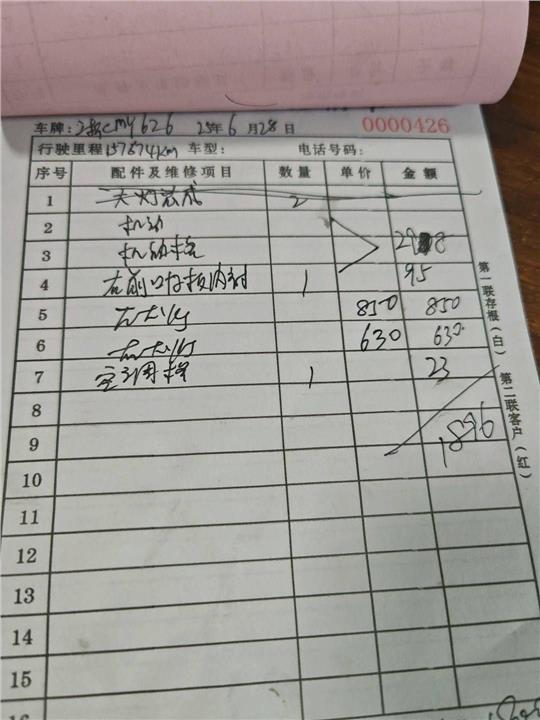 车牌: CMY626 25年6月28日 0000426
行驶里程137874KM 车型: 电话号码:
序号 配件及维修项目 数量 单价 金额
1 大灯总成 2
2 机油
3 机油格 298
4 右前 1 95
5 右大灯 850 850
6 左大灯 630 630
7 空调格 1 23
8
9 1896
10
11
12
13
14
15
16
第一联存根(白)
第二联客户(红)